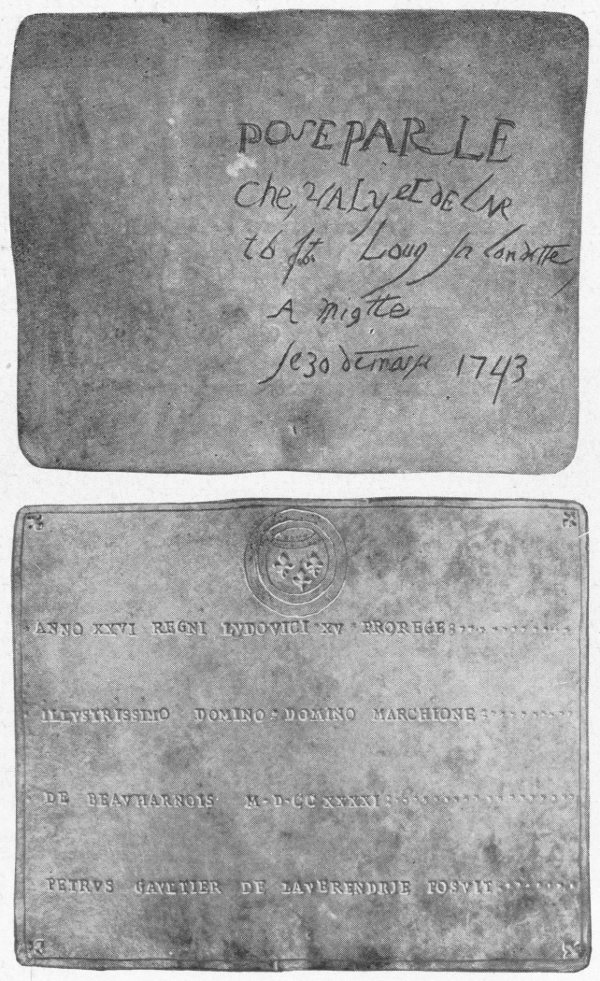 POSE PAR LE
Che,VALy et DE LAR
t b St. Louy La Londette,
A Miotte
Le 30 de mars 1743
ANNO XXVI REGNI LVDOVICI XV PROREGE
ILLVSTRISSIMO DOMINO DOMINO MARCHIONE
DE BEAVHARNOIS M·D·CC XXXXI
PETRVS GAVLTIER DE LAVERENDRIE POSVIT